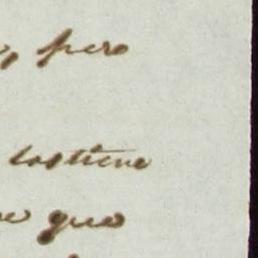 pero
sostiene
que